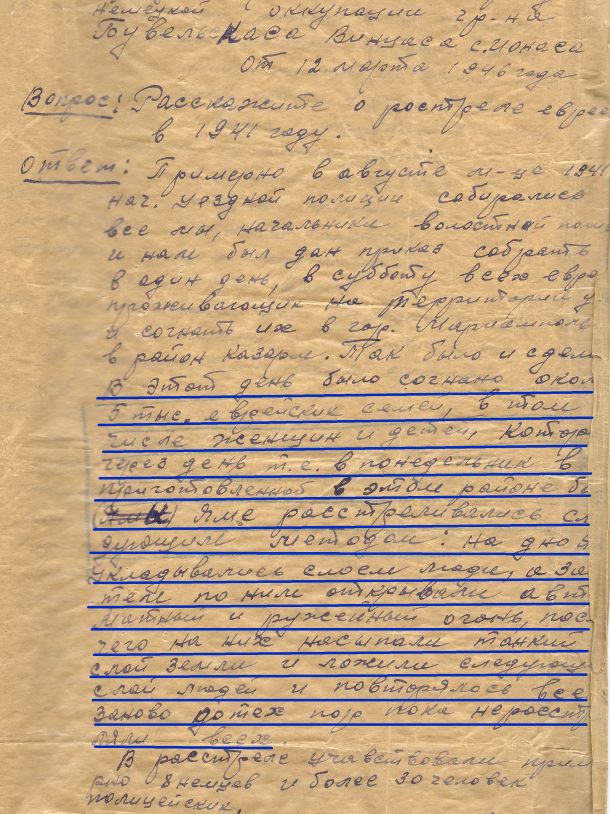 немецкой оккупации гр-на
Бувельскаса Винцаса с. Ионаса
От 12 марта 1946 года
Вопрос: Расскажите о росстреле евреев
в 1941 году.
Ответ: Примерно в августе м-це 1941
нач. уездной полиции собирались
все мы, начальники волостной пол
и нам был дан приказ собрать
в один день, в субботу всех евре
проживающих на территории у
и согнать их в гор. Мариамполь
в район казарм. Так было и сдела
В этот день было согнано окол
5 тыс. еврейских семей, в том
числе женщин и детей, котор
через день т.е. в понедельник в
приготовленной в этом районе бы
(яме) яме расстреливались сл
дующим методом: на дно я
укладывались слоем люди, а за
тем по ним открывали авт
матный и ружейный огонь, пос
чего на них насыпали тонкий
слой земли и ложили следующи
слой людей и повторялось все
заново до тех пор пока нерасст
ляли всех.
В расстреле учавствовали прим
рно 8 немцев и более 30 человек
полицейских.